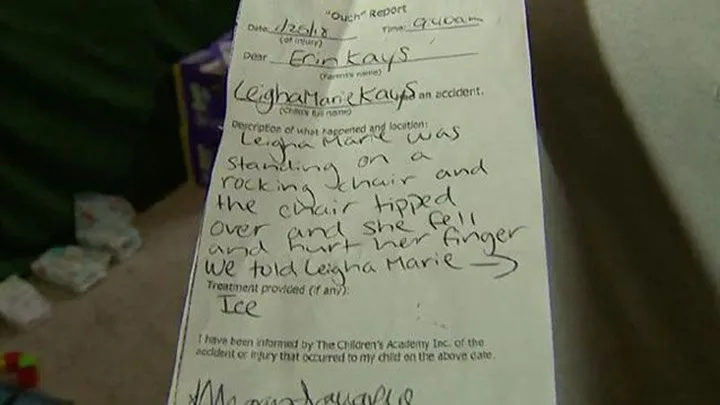 "Ouch" Report
Date 1/25/18 Time: 9:40am
(of injury)
Dear Erin Kays
(Parent's name)
Leigha Marie Kays had an accident.
(Child's full name)
Description of what happened and location:
Leigha Marie was
standing on a
rocking chair and
the chair tipped
over and she fell
and hurt her finger
We told Leigha Marie →
Treatment provided (if any):
Ice
I have been informed by The Children's Academy Inc. of the
accident or injury that occurred to my child on the above date.